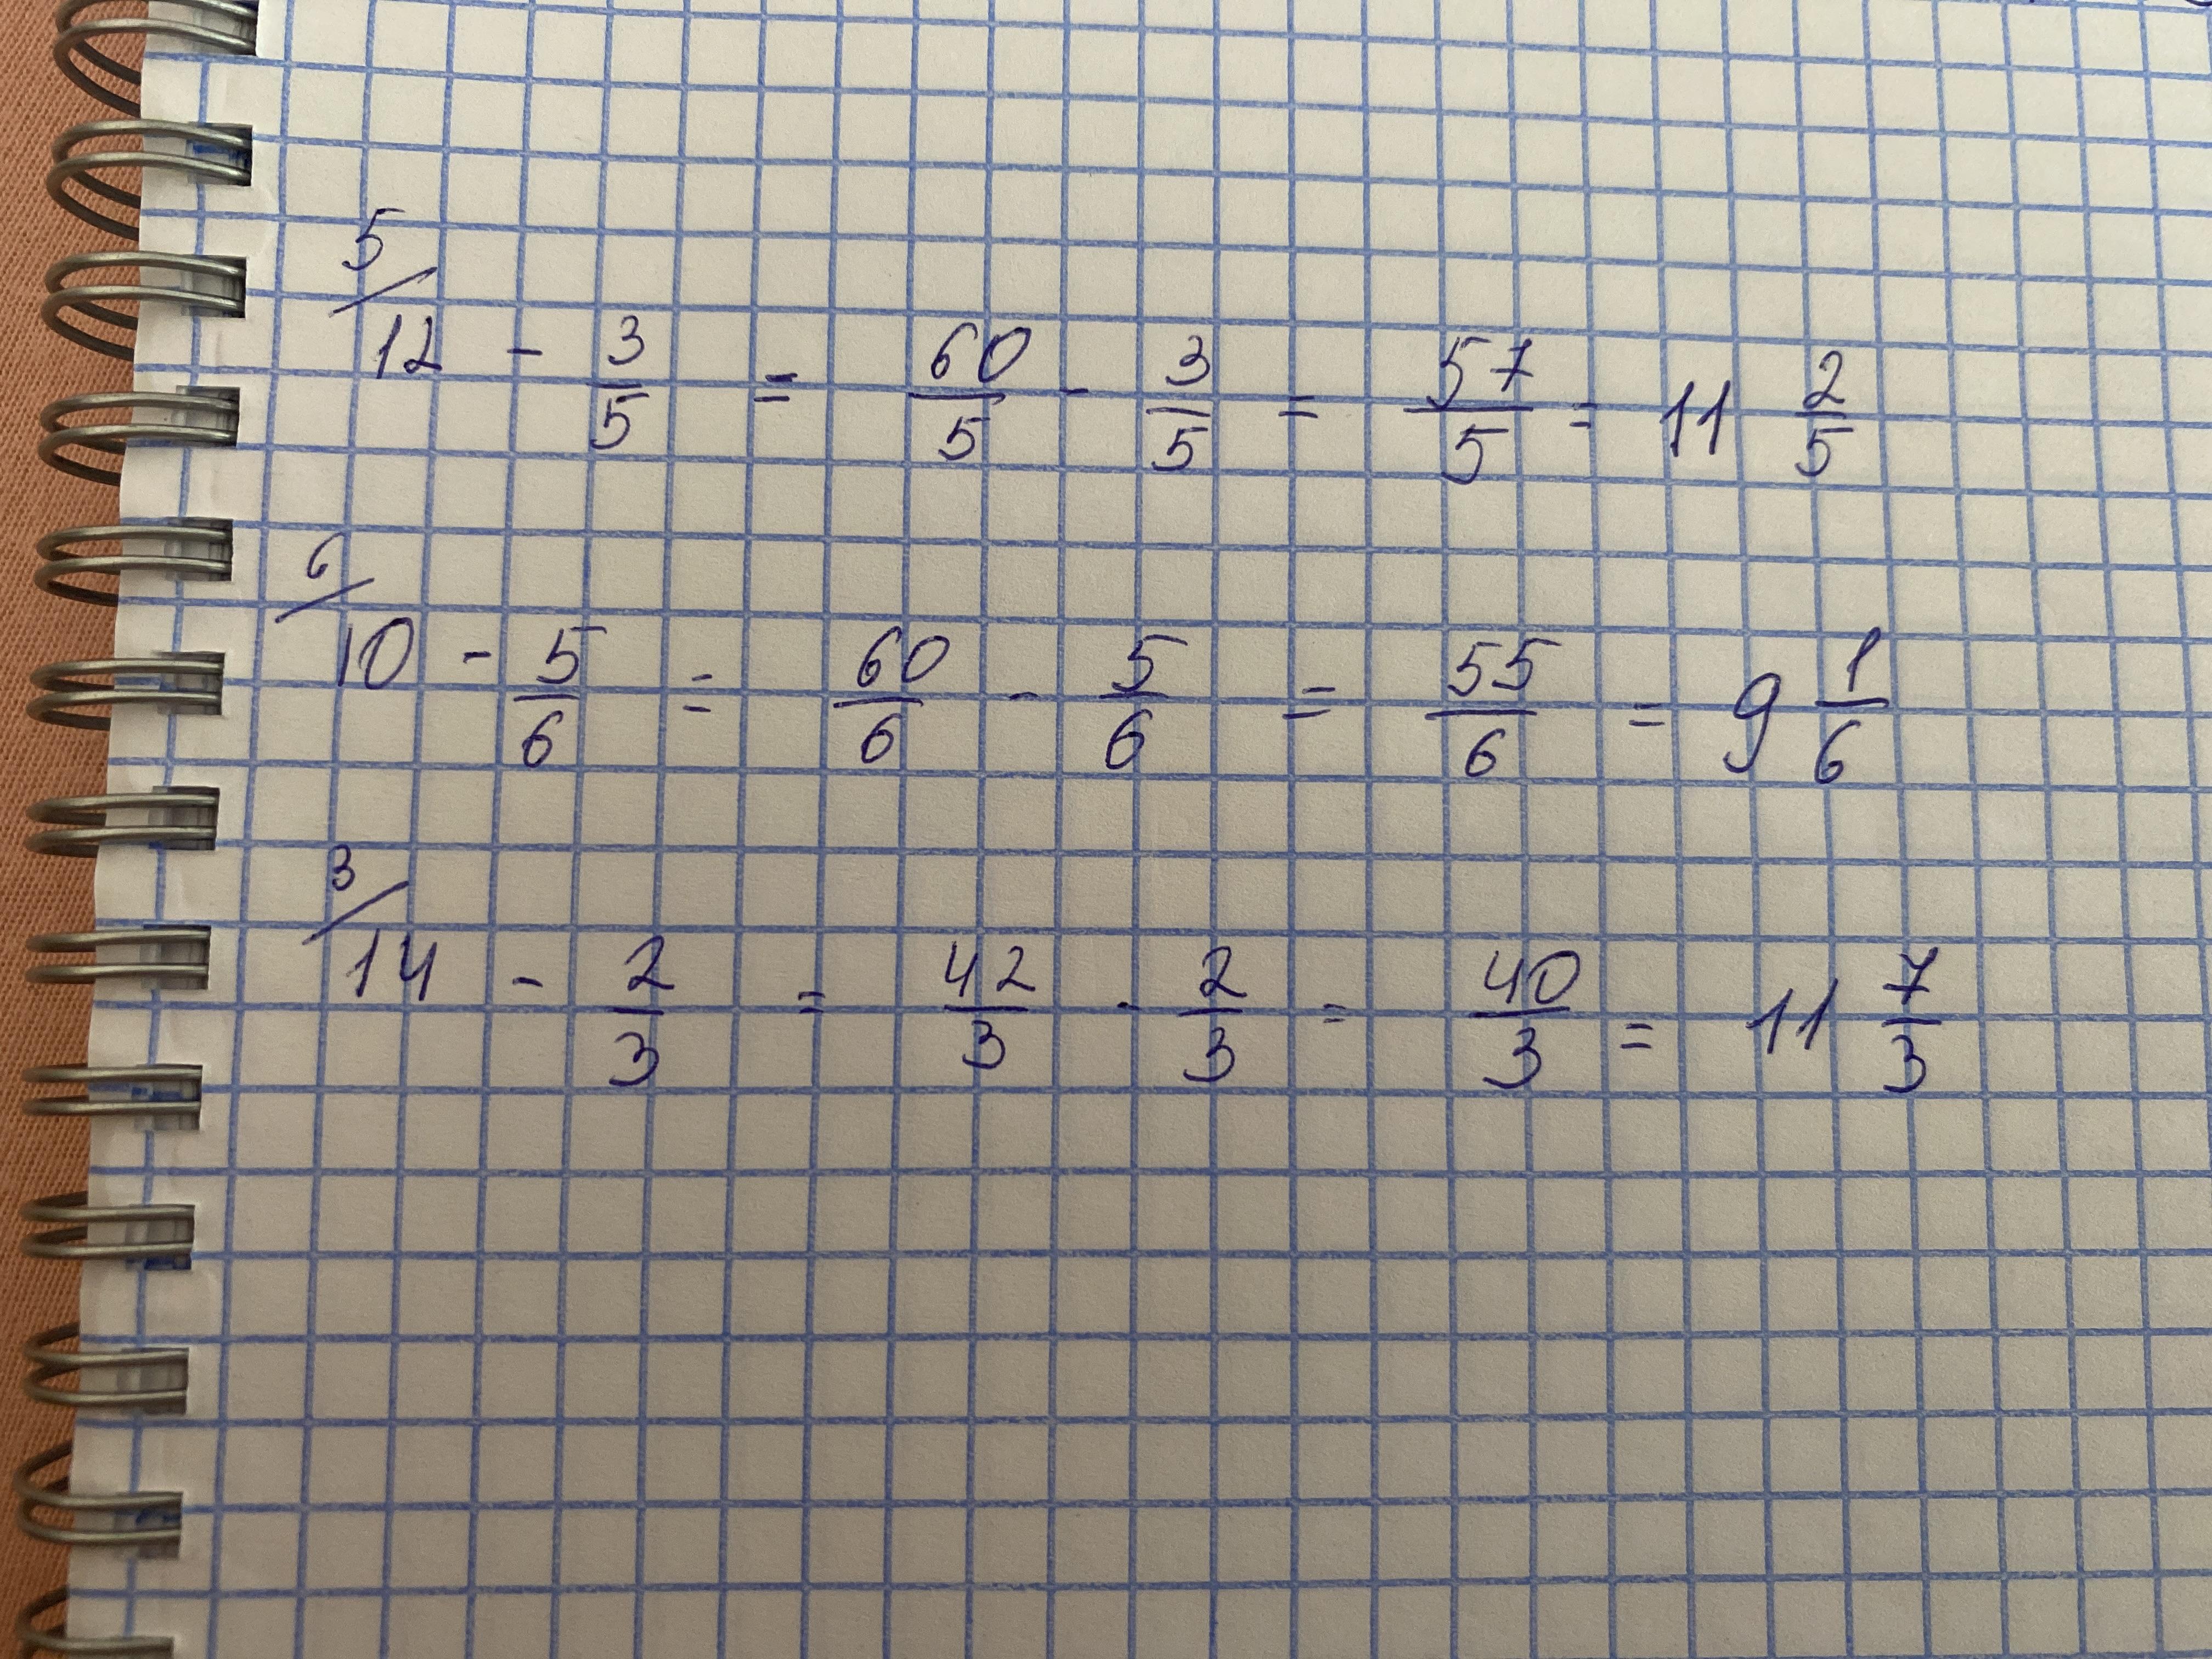 5/12 - 3/5 = 60/5 - 3/5 = 57/5 = 11 2/5
6/10 - 5/6 = 60/6 - 5/6 = 55/6 = 9 1/6
3/14 - 2/3 = 42/3 - 2/3 = 40/3 = 11 7/3